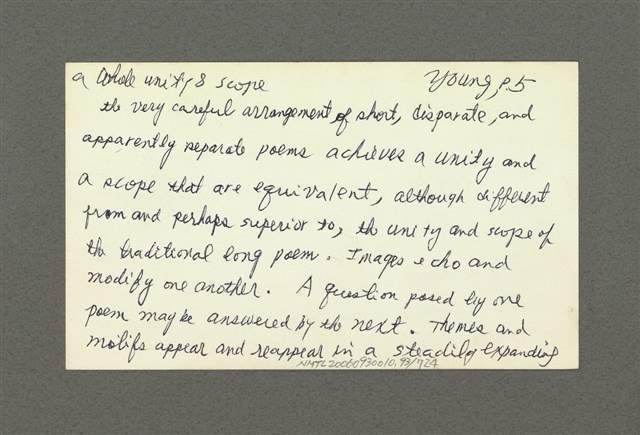 a whole unity & scope
Young, p.5
the very careful arrangement of short, disparate, and
apparently separate poems achieves a unity and
a scope that are equivalent, although different
from and perhaps superior to, the unity and scope of
the traditional long poem. Images echo and
modify one another. A question posed by one
poem may be answered by the next. Themes and
motifs appear and reappear in a steadily expanding
NMTL20060930010,93/724